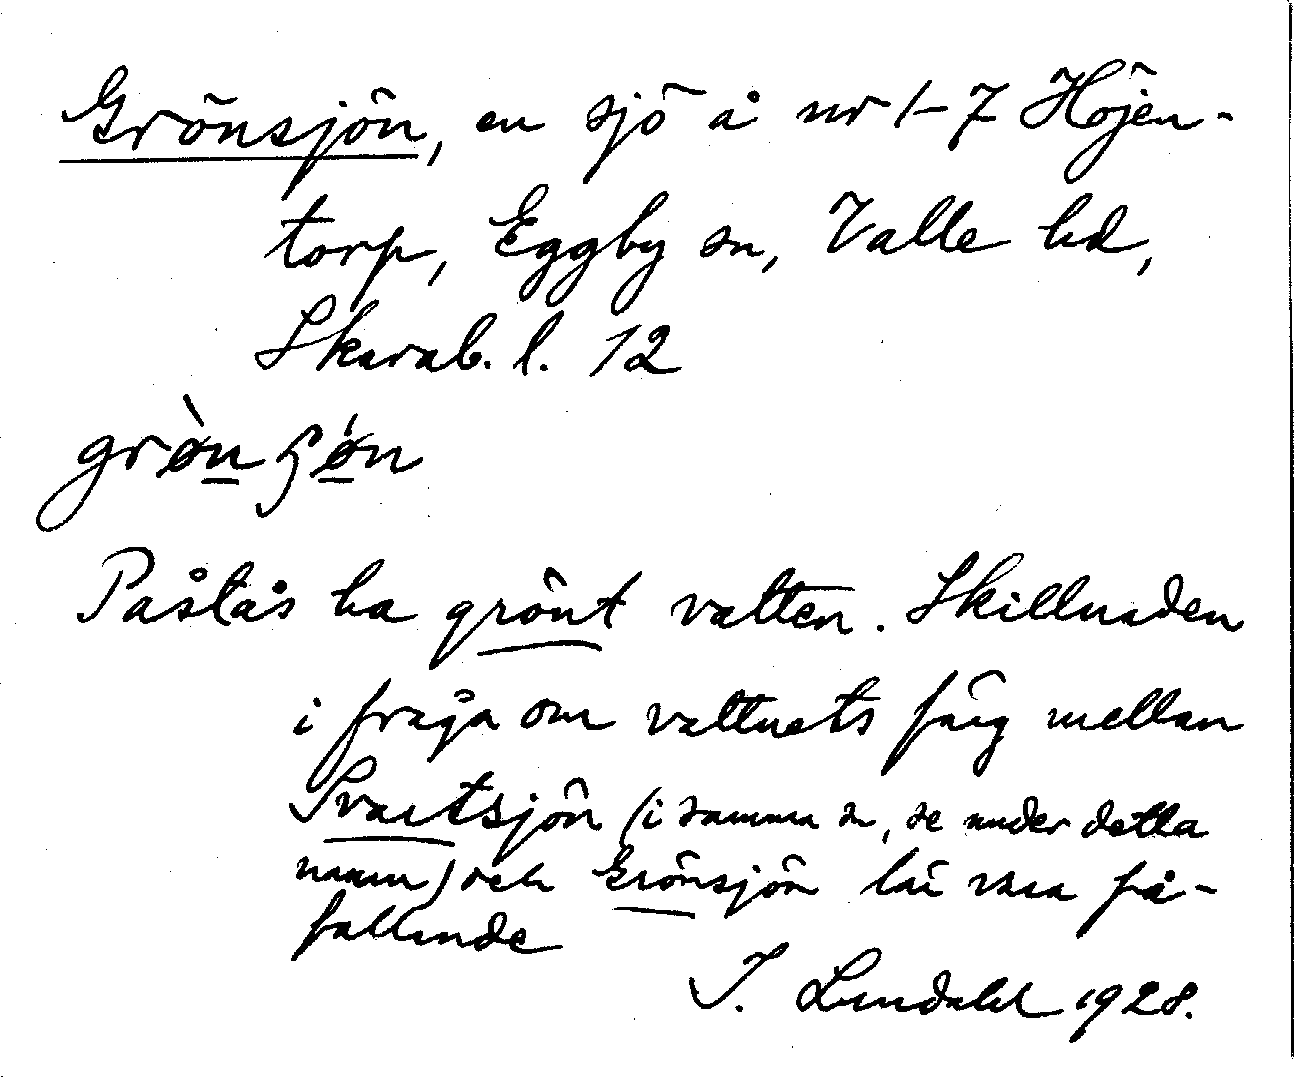 Grönsjön, en sjö å nr 1-7 Höjen-
torp, Eggby sn, Valle hd,
Skarab. l. 12
grò̀n ʂǿn
Påstås ha grönt vatten. Skillnaden
i fråga om vattnets färg mellan
Svartsjön (i samma sn, se under detta
namn) och Grönsjön lär vara på-
fallande
I. Lundahl 1928.